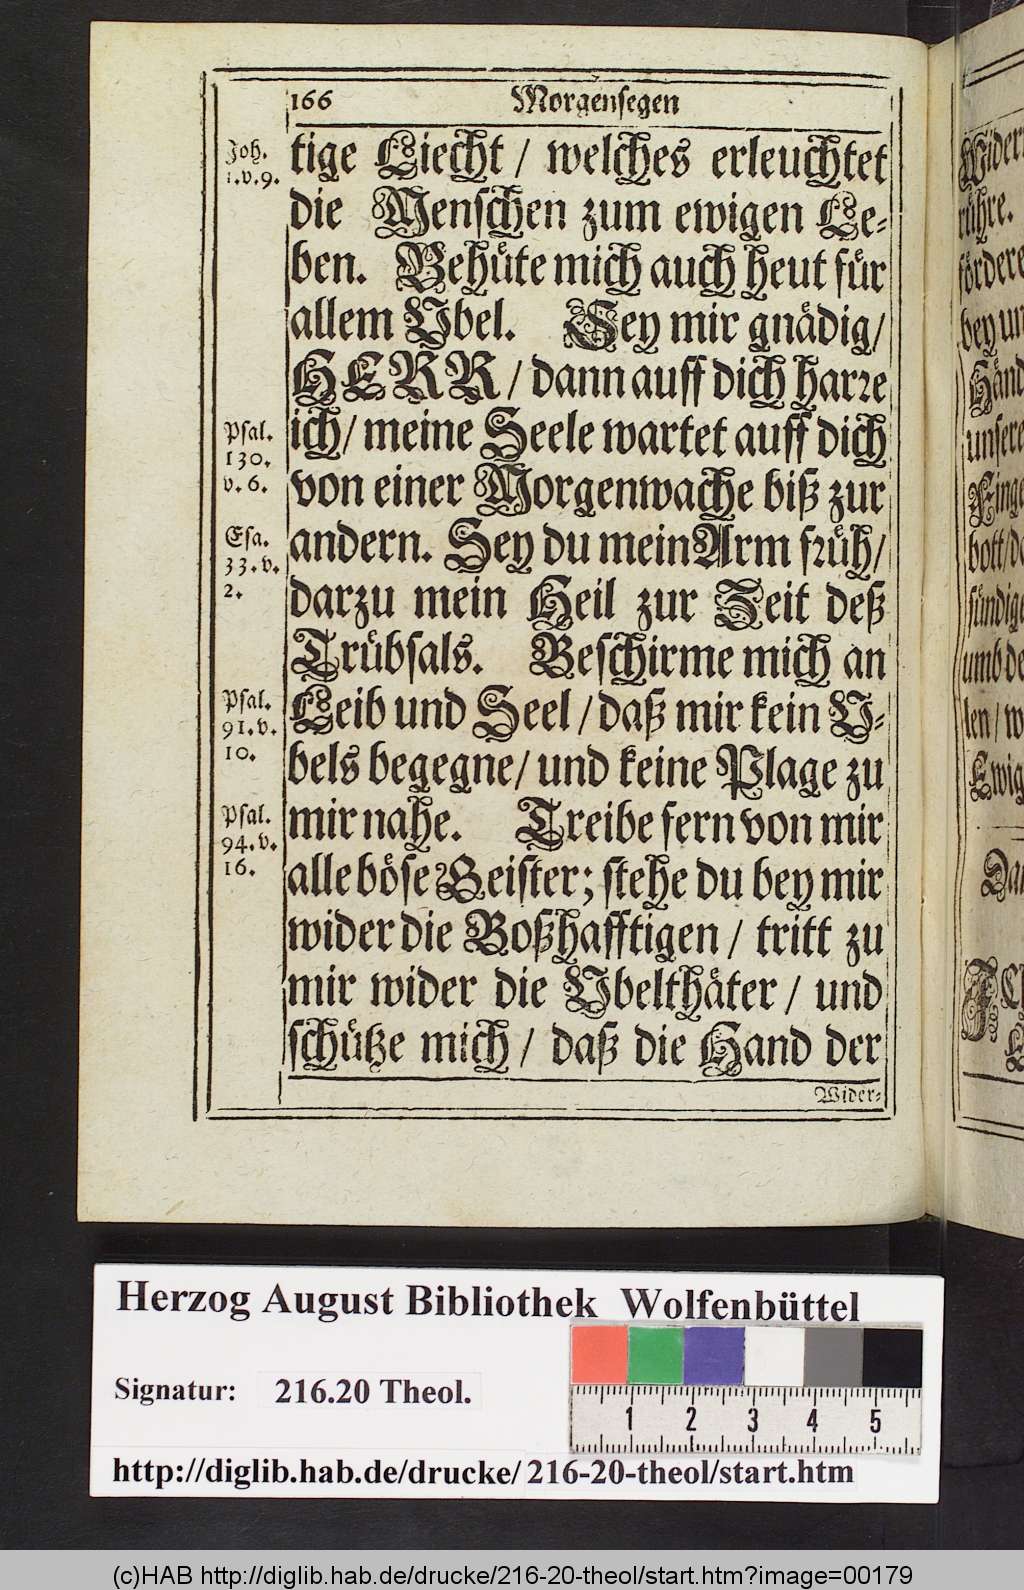 166 Morgensegen
Joh.
1.v.9.
tige Liecht / welches erleuchtet
die Menschen zum ewigen Le-
ben. Behüte mich auch heut für
allem Ubel. Sey mir gnädig/
HERR / dann auff dich harre
Psal.
130.
v. 6.
ich/ meine Seele wartet auff dich
von einer Morgenwache biß zur
Esa.
33. v.
2.
andern. Sey du mein Arm früh/
darzu mein Heil zur Zeit deß
Trübsals. Beschirme mich an
Psal.
91. v.
10.
Leib und Seel / daß mir kein U-
bels begegne/ und keine Plage zu
Psal.
94. v.
16.
mir nahe. Treibe fern von mir
alle böse Geister; stehe du bey mir
wider die Boßhafftigen / tritt zu
mir wider die Ubelthäter / und
schütze mich / daß die Hand der
Wider-
rühre.
bey un
Händ
unsere
bott/
sündige
umb de
len / w
Ewig
Herzog August Bibliothek Wolfenbüttel
Signatur: 216.20 Theol.
1 2 3 4 5
http://diglib.hab.de/drucke/216-20-theol/start.htm
(c)HAB http://diglib.hab.de/drucke/216-20-theol/start.htm?image=00179